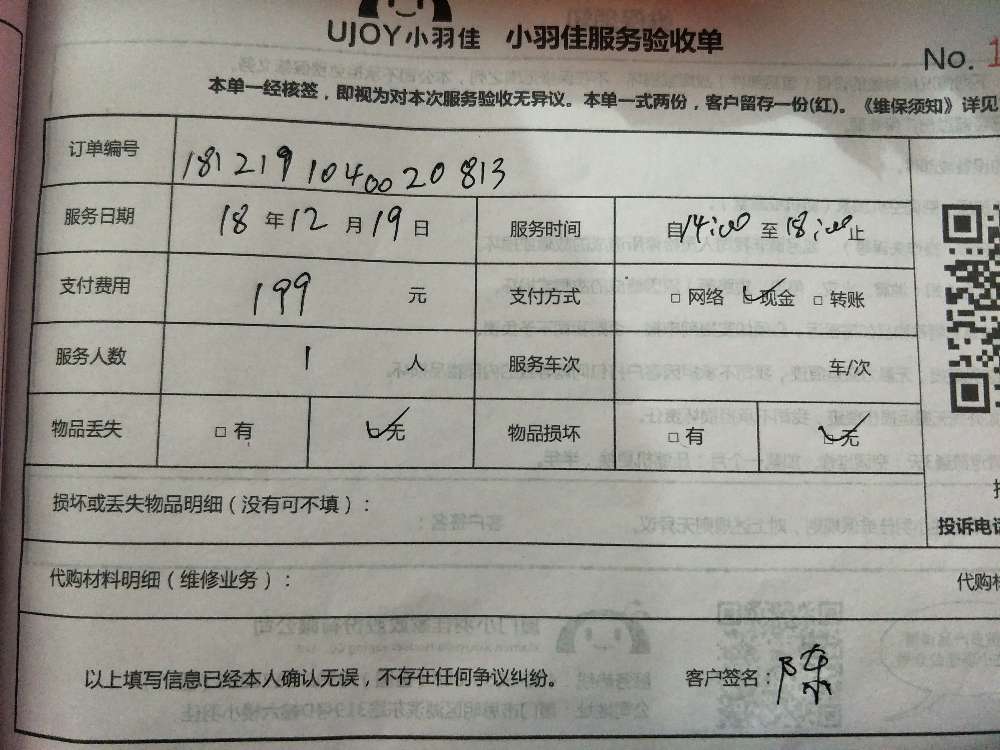 UJOY小羽佳 小羽佳服务验收单
No. 1
本单一经核签，即视为对本次服务验收无异议。本单一式两份，客户留存一份(红)。《维保须知》详见
订单编号 1812191040020813
服务日期 18 年 12 月 19 日 服务时间 自14:00 至 18:00止
支付费用 199 元 支付方式 □ 网络 ☑现金 □ 转账
服务人数 1 人 服务车次 车/次
物品丢失 □ 有 ☑无 物品损坏 □ 有 ☑无
损坏或丢失物品明细（没有可不填）：
投诉电话
代购材料明细（维修业务）： 代购材
以上填写信息已经本人确认无误，不存在任何争议纠纷。 客户签名：陈